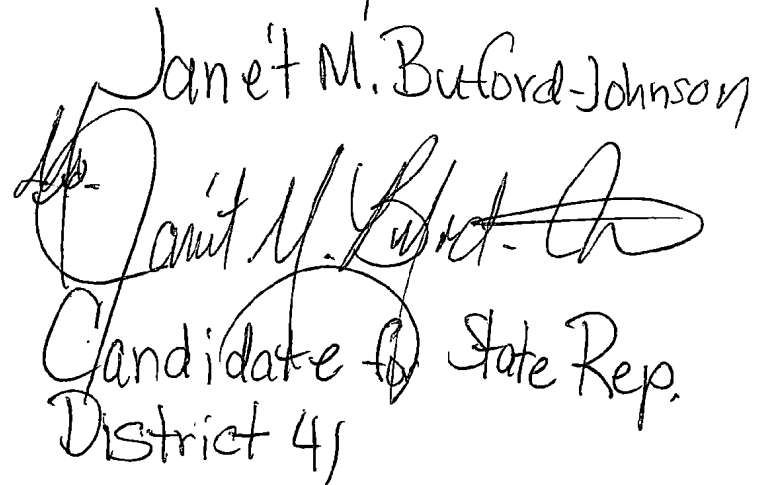 Janét M. Buford-Johnson
Rep. Janét M. Buford-
Candidate for State Rep.
District 41